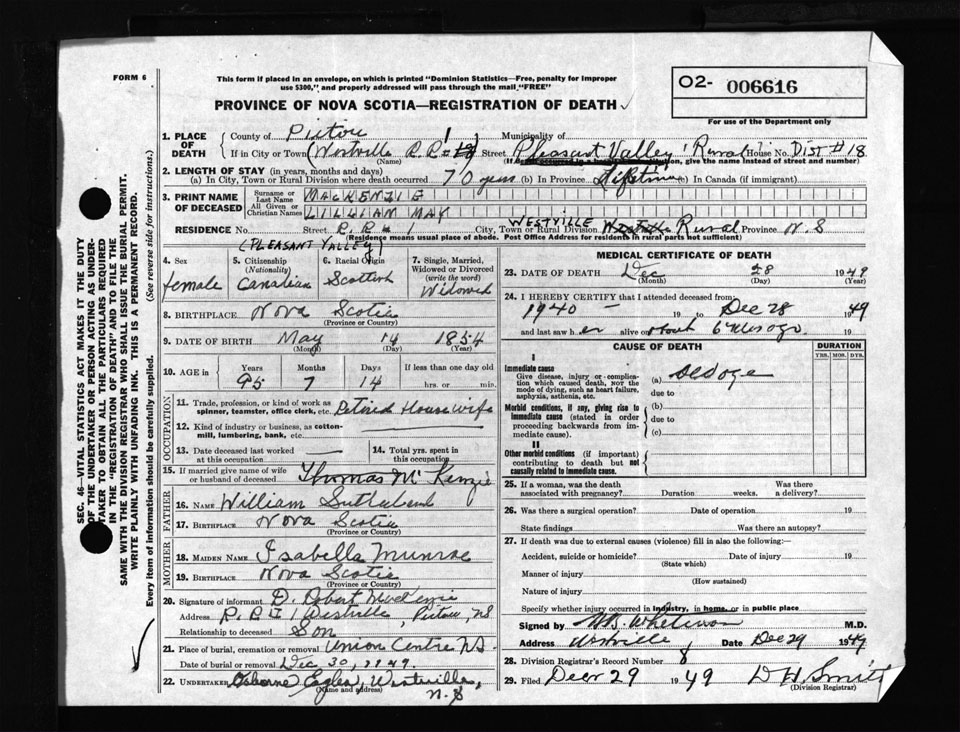 FORM 6
This form if placed in an envelope, on which is printed "Dominion Statistics—Free, penalty for improper
use $300," and properly addressed will pass through the mail "FREE"
O2- 006616
For use of the Department only
PROVINCE OF NOVA SCOTIA—REGISTRATION OF DEATH
1. PLACE OF DEATH County of Pictou Municipality of
If in City or Town (Westville R.R. # 1 Street Pleasant Valley (Rural) House No. Dist # 18
(Name) (If death occurred in a hospital or institution, give the name instead of street and number)
2. LENGTH OF STAY (in years, months and days)
(a) In City, Town or Rural Division where death occurred 70 years (b) In Province Lifetime (c) In Canada (if immigrant)
3. PRINT NAME OF DECEASED Surname or Last Name MACKENZIE
All Given or Christian Names LILLIAN MAY
RESIDENCE No. Street R.R. # 1 City, Town or Rural Division WESTVILLE Rural Province N.S
(Residence means usual place of abode. Post Office Address for residents in rural parts not sufficient)
(PLEASANT VALLEY)
4. Sex female
5. Citizenship (Nationality) Canadian
6. Racial Origin Scottish
7. Single, Married, Widowed or Divorced (write the word) Widowed
8. BIRTHPLACE Nova Scotia
(Province or Country)
9. DATE OF BIRTH May 14 1854
(Month) (Day) (Year)
10. AGE in Years 95 Months 7 Days 14 If less than one day old hrs. or min.
OCCUPATION
11. Trade, profession, or kind of work as spinner, teamster, office clerk, etc. Retired Housewife
12. Kind of industry or business, as cotton-mill, lumbering, bank, etc.
13. Date deceased last worked at this occupation
14. Total yrs. spent in this occupation
15. If married give name of wife or husband of deceased Thomas McKenzie
FATHER
16. NAME William Sutherland
17. BIRTHPLACE Nova Scotia
(Province or Country)
MOTHER
18. MAIDEN NAME Isabella Munroe
19. BIRTHPLACE Nova Scotia
(Province or Country)
20. Signature of informant D. Robert MacKenzie
Address R.R # 1 Westville, Pictou, NS
Relationship to deceased Son
21. Place of burial, cremation or removal Union Centre NS.
Date of burial or removal Dec 30, 1949.
22. UNDERTAKER Osborne Eagles, Westville, N.S
(Name and address)
MEDICAL CERTIFICATE OF DEATH
23. DATE OF DEATH Dec 28 1949
(Month) (Day) (Year)
24. I HEREBY CERTIFY that I attended deceased from:
1940 – 19 to Dec 28 1949
and last saw her alive on about 6 mos ago. 19
CAUSE OF DEATH
DURATION
YRS. MOS. DYS.
I
Immediate cause
Give disease, injury or complication which caused death, NOT the mode of dying, such as heart failure, asphyxia, asthenia, etc.
(a) old age
due to
Morbid conditions, if any, giving rise to immediate cause (stated in order proceeding backwards from immediate cause).
(b)
due to
(c)
II
Other morbid conditions (if important) contributing to death but not causally related to immediate cause.
25. If a woman, was the death associated with pregnancy? Duration weeks. Was there a delivery?
26. Was there a surgical operation? Date of operation 19
State findings Was there an autopsy?
27. If death was due to external causes (violence) fill in also the following:
Accident, suicide or homicide? Date of injury 19
(State which)
Manner of injury
(How sustained)
Nature of injury
Specify whether injury occurred in industry, in home, or in public place
Signed by M.D.
Address Westville Date Dec 29 1949
28. Division Registrar's Record Number 8
29. Filed Decr 29 1949 D H Smith
(Division Registrar)
SEC. 46—VITAL STATISTICS ACT MAKES IT THE DUTY
OF THE UNDERTAKER OR PERSON ACTING AS UNDERTAKER
TO OBTAIN ALL THE PARTICULARS REQUIRED
IN THE "REGISTRATION OF DEATH" AND TO FILE THE
SAME WITH THE DIVISION REGISTRAR WHO SHALL ISSUE THE BURIAL PERMIT.
WRITE PLAINLY WITH UNFADING INK. THIS IS A PERMANENT RECORD.
Every item of information should be carefully supplied. (See reverse side for instructions.)